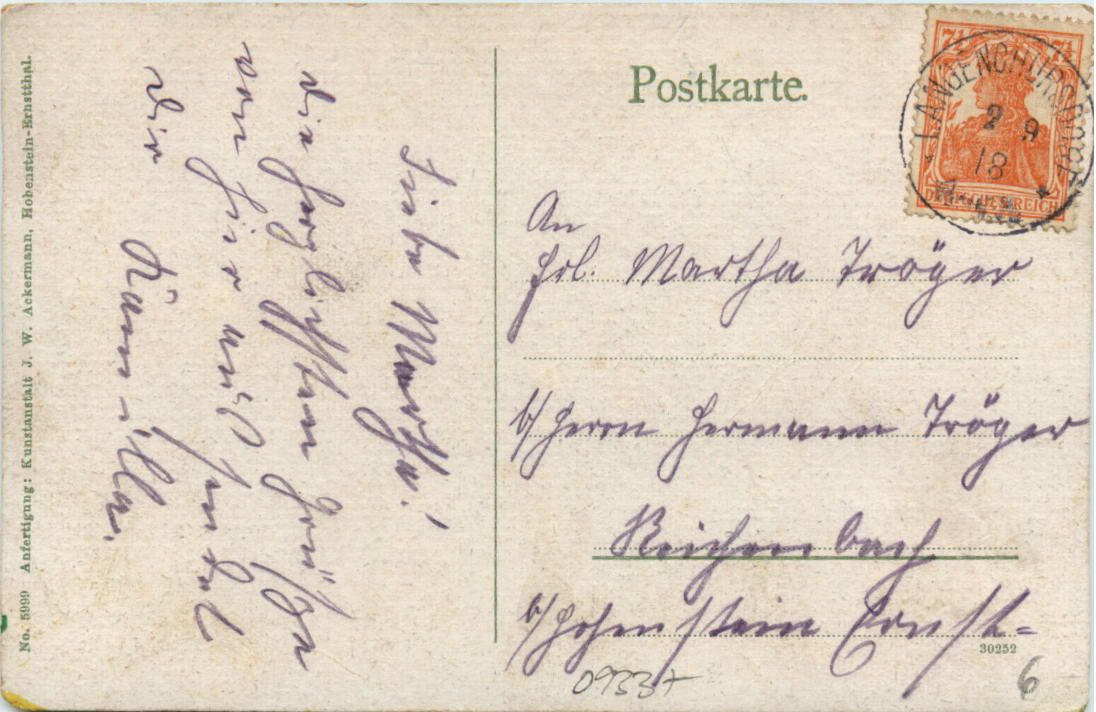 No. 5999 Anfertigung: Kunstanstalt J. W. Ackermann, Hohenstein-Ernstthal.
Liebe Martha!
die herzlichsten Grüße
von hier aus sendet
Dir
Kamilla.
Postkarte.
7½ 7½
DEUTSCHES REICH
LANGENCHURSDORF
2 9
18
An
Frl. Martha Tröger
b/ Herrn Hermann Tröger
Reichenbach
b/ Hohenstein Ernst=
30252
0933+
6